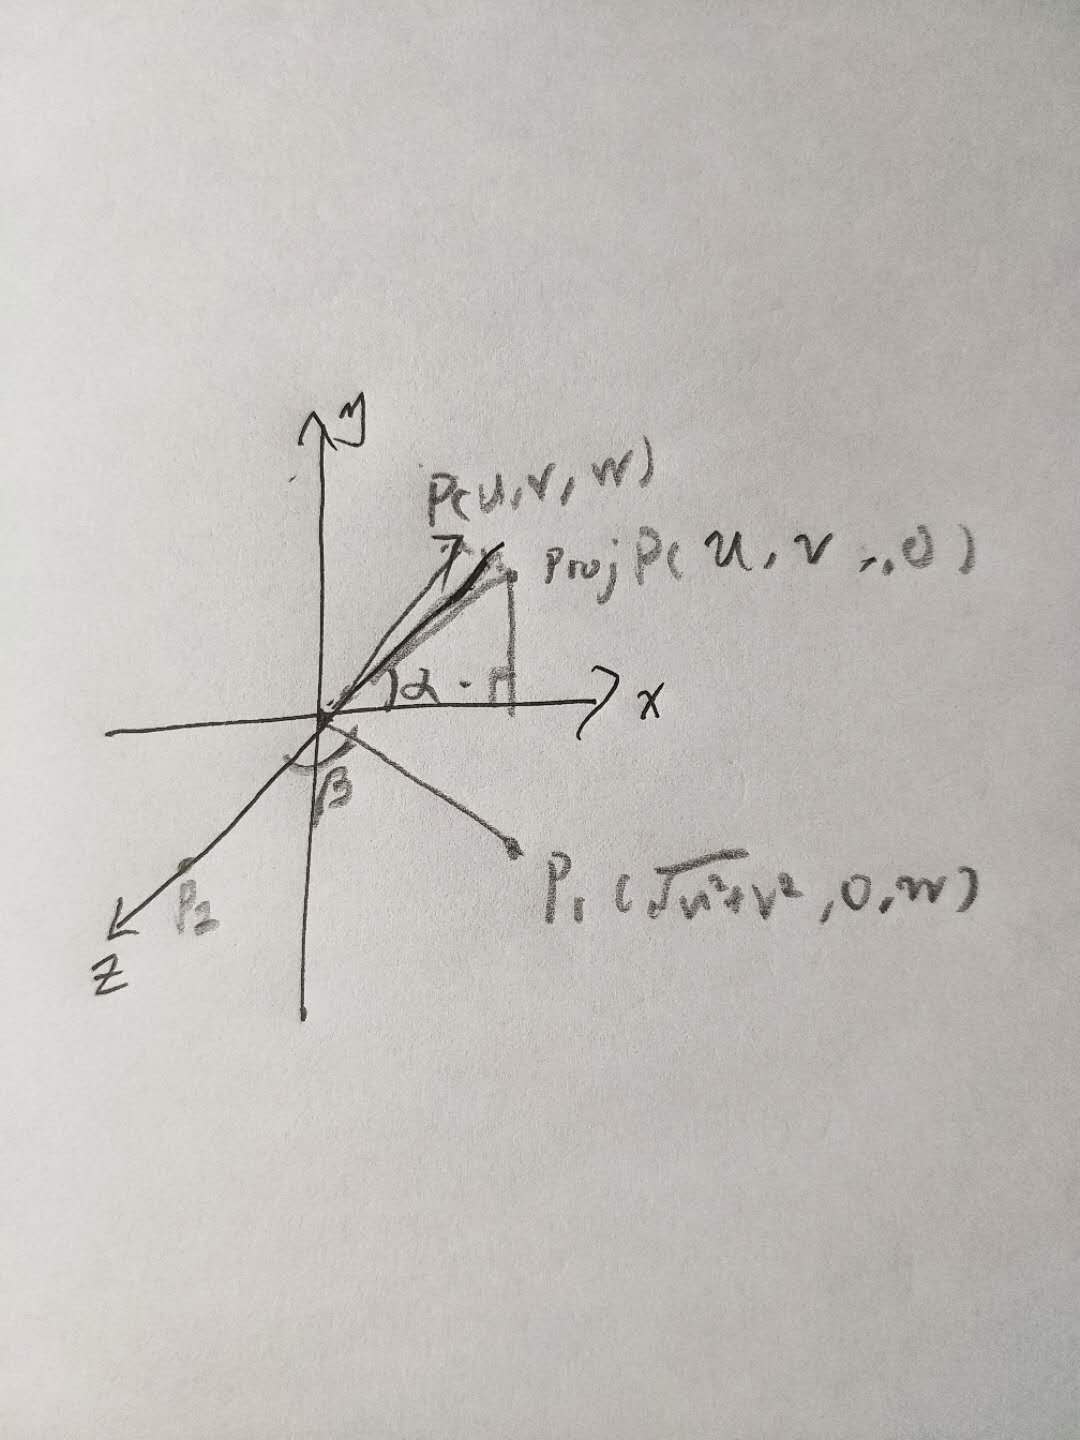 y
P(u, v, w)
Proj P( u, v, 0 )
α
x
β
P₁ (√u²+v² , 0, w)
P₂
z